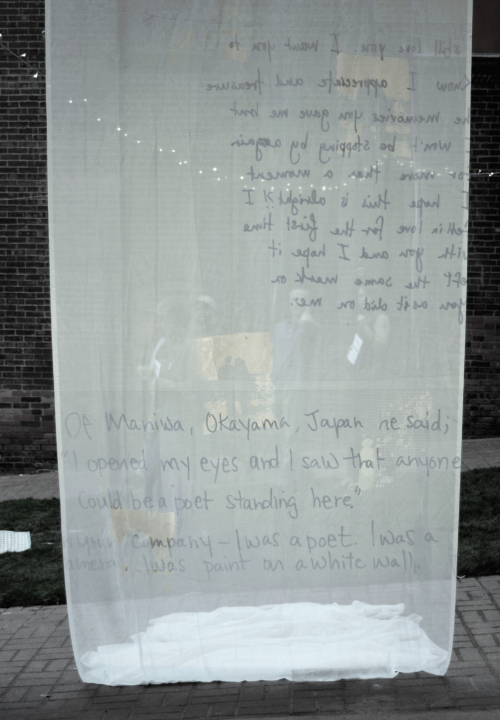 still love you. I want you to
know I appreciate and treasure
the memories you gave me but
I won't be stopping by again
for more than a moment
I hope this is alright!! I
fell in love for the first time
with you and I hope it
left the same mark on
you as it did on me.
Of Maniwa, Okayama, Japan he said;
"I opened my eyes and I saw that anyone
could be a poet standing here."
company - I was a poet. I was a
I was paint on a white wall.